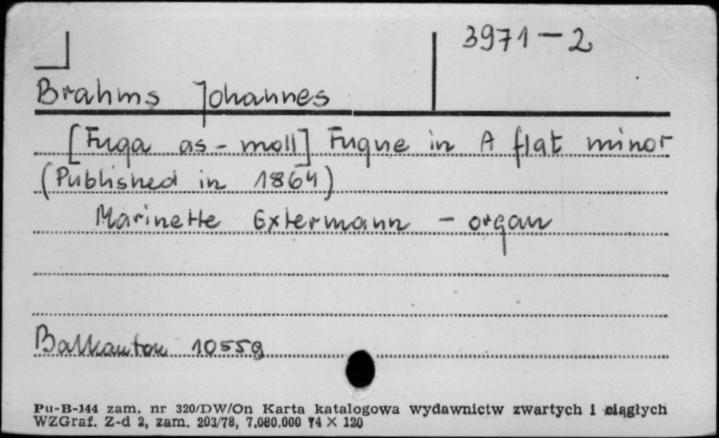 3971-2
Brahms Johannes
[Fuga as-moll] Fugue in A flat minor
(Published in 1864)
Marinette Extermann - organ
Balkanton 10559
Pu-B-144 zam. nr 320/DW/On Karta katalogowa wydawnictw zwartych i ciągłych
WZGraf. Z-d 2, zam. 203/78, 7.080.000 74 × 120